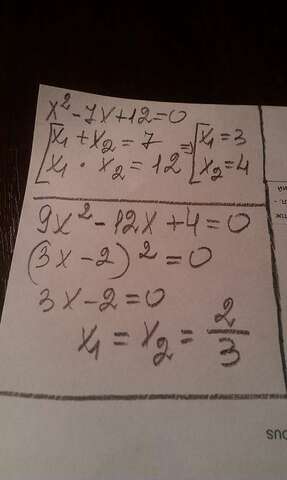 x² - 7x + 12 = 0
[x₁ + x₂ = 7 ⇒ [x₁ = 3
[x₁ · x₂ = 12 [x₂ = 4
9x² - 12x + 4 = 0
(3x - 2)² = 0
3x - 2 = 0
x₁ = x₂ = 2/3